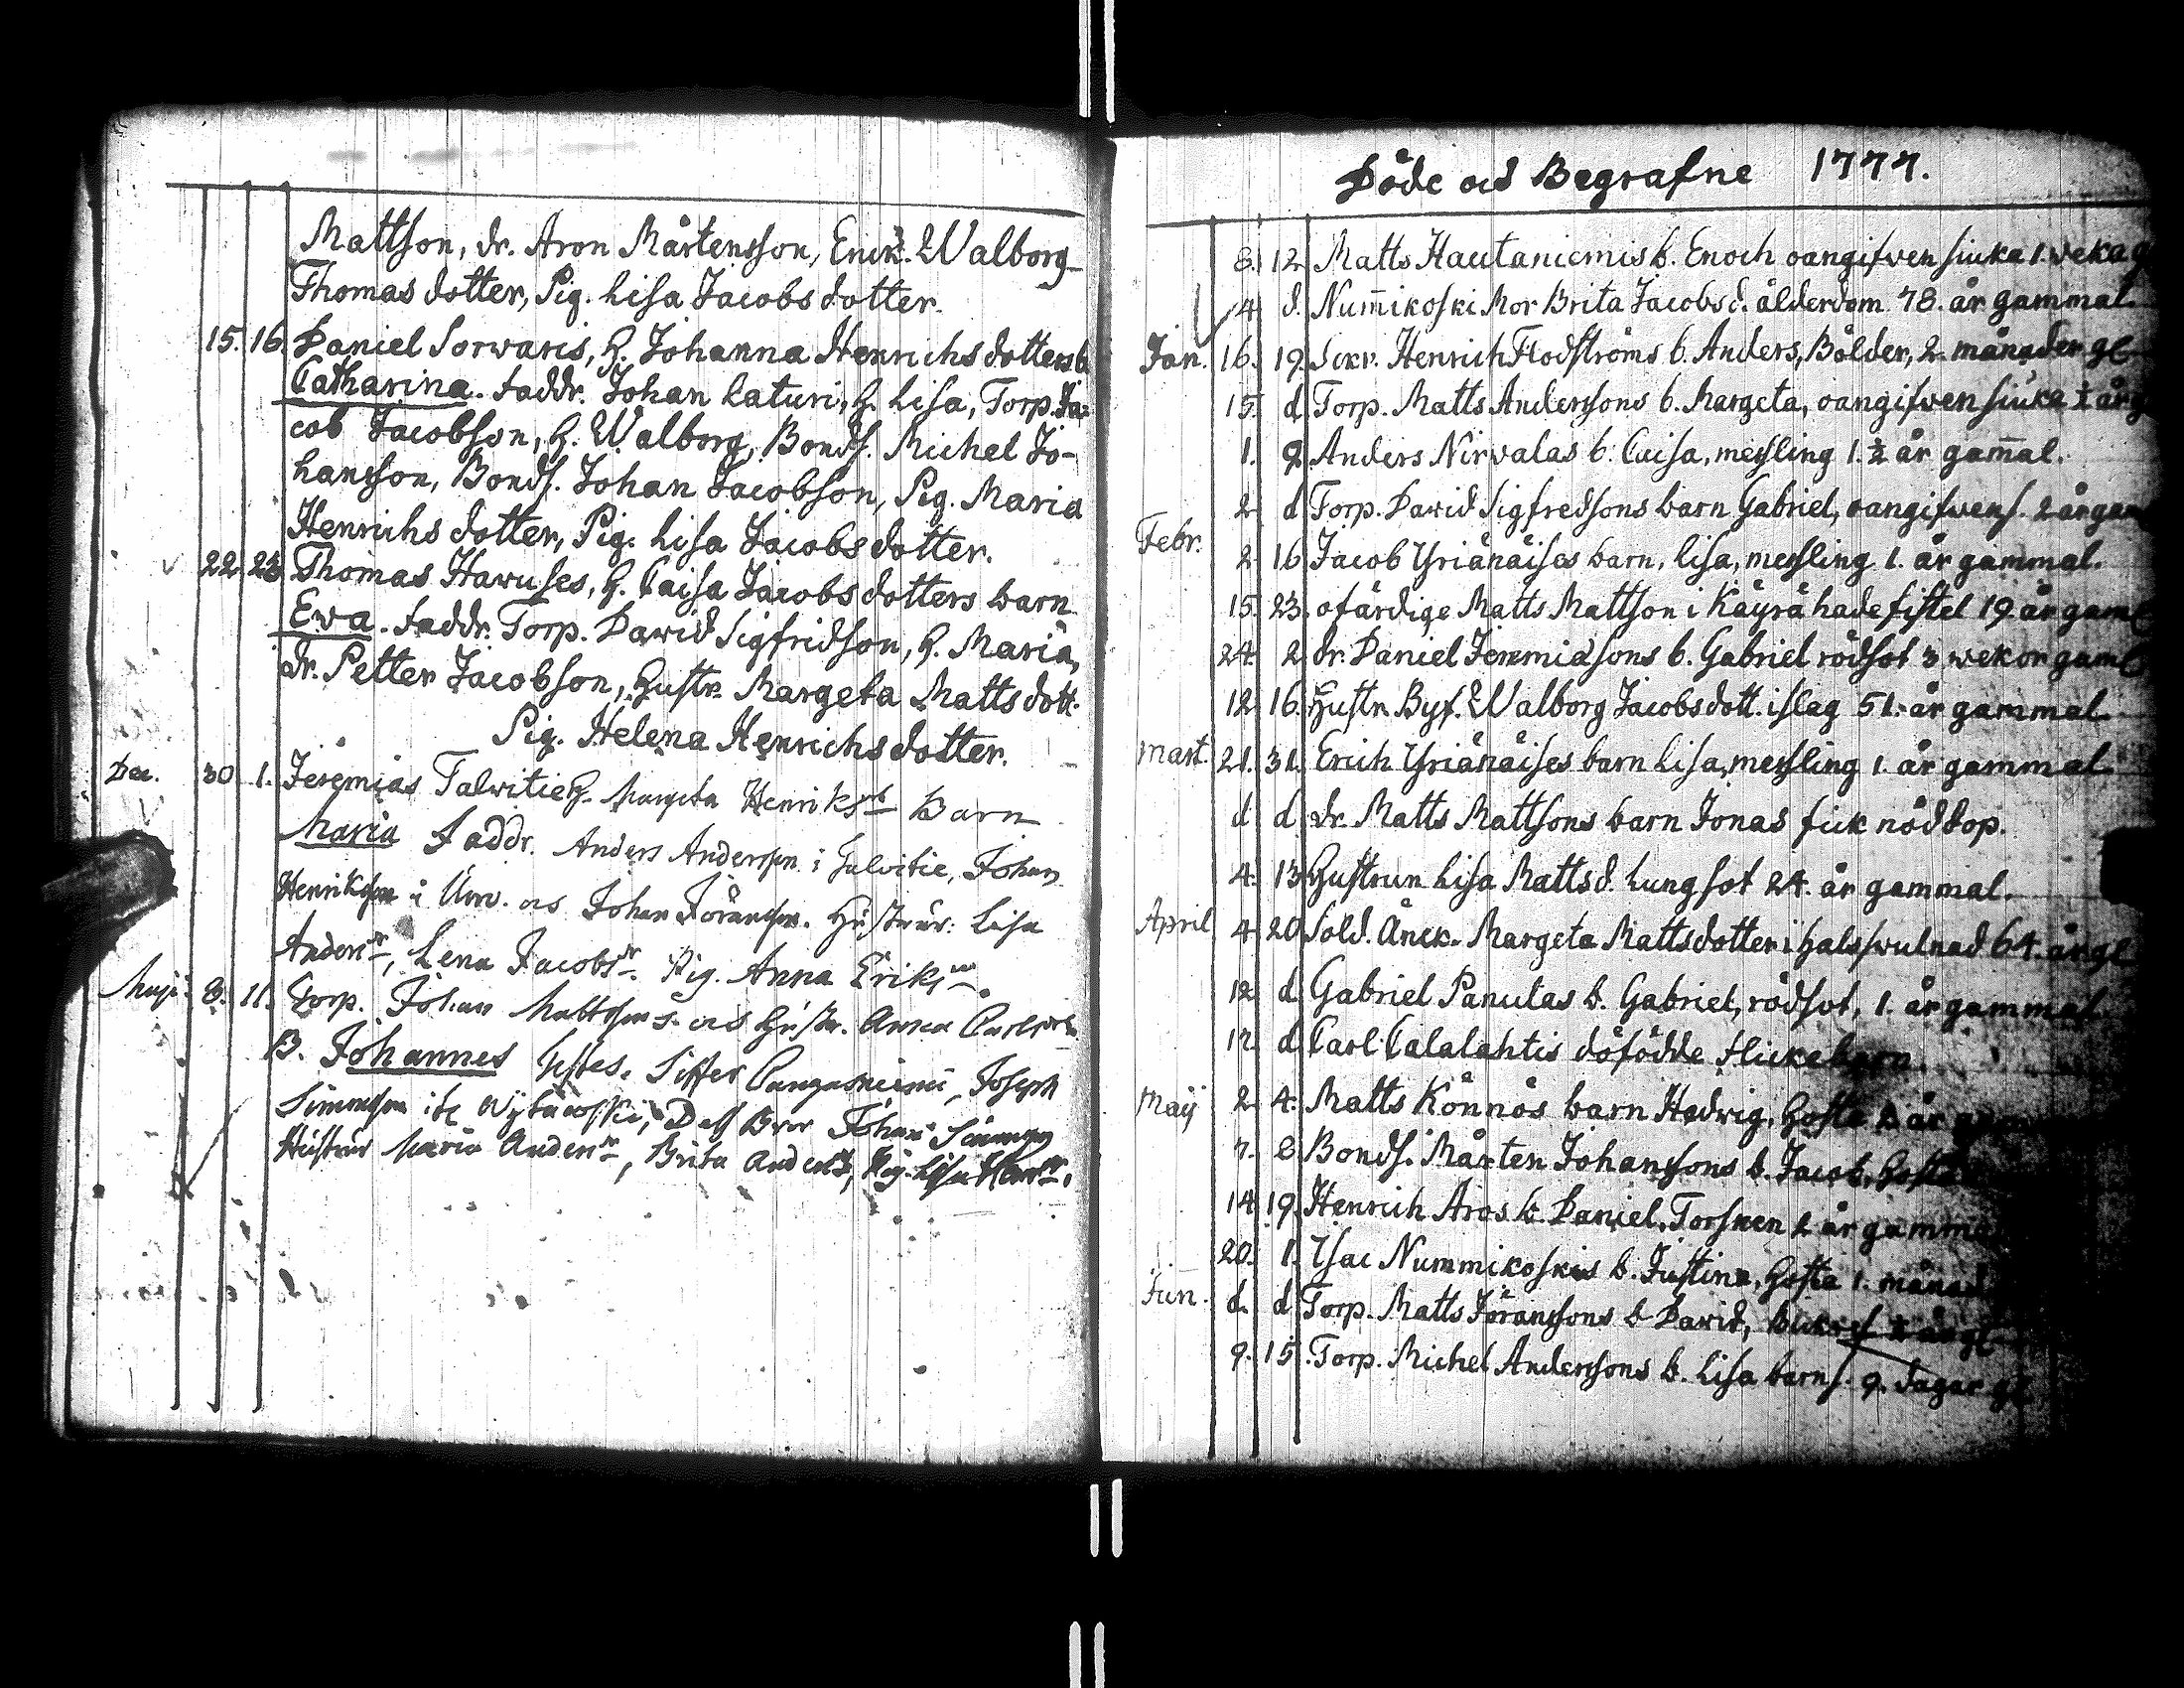 Mattson, dr. Aron Mårtensson, Enck. Walborg
Thomas dotter, Pig. Lisa Jacobs dotter.
15. 16. Daniel Sorvaris, H. Johanna Henrichs dotters b.
Catharina. Faddr. Johan Laturi, H. Lisa, Torp. Ja=
cob Jacobson, H. Walborg, Bonds. Michel Jo-
hansson, Bonds. Johan Jacobson, Pig. Maria
Henrichs dotter, Pig. Lisa Jacobs dotter.
22. 23 Thomas Hawuses, H. Caisa Jacobs dotters barn
Ewa. Faddr. Torp. David Sigfridson, H. Maria,
dr. Petter Jacobson, Hustr. Margeta Matts dott.
Pig. Helena Henrichs dotter.
Dec. 30 1. Jeremias Talvitie H. Margeta Henriks Barn
Maria Faddr. Anders Andersson i Talvitie, Johan
Henrikson i och Johan Jöransson. Hustrur: Lisa
Anders, Lena Jacobs. Pig. Anna Eriks.
Maji. 8. 11. Torp. Johan Mattsons och Hustr. Anna
B. Johannes Testes. Johan
Hustrur Maria Anders, Brita Anders, Pig. Lisa
Döde och Begrafne 1777.
8. 12 Matts Hautaniemis b. Enoch oangifven siuka 1. weka
4 d. Num̄ikoski Mor Brita Jacobsd. ålderdom 78. år gammal.
Jan. 16. 19. Henrich Flodströms b. Anders, Bölder, 2 månader gl
15. d Torp. Matts Anderssons b. Margeta, oangifven siuka ½ år
1. 9 Anders Nirvalas b. Caisa, messling 1.½ år gam̄al.
2 d Torp. David Sigfredsons barn Gabriel, oangifven s. 2 år gam
Febr. 2 16 Jacob Yrjänäises barn, Lisa, messling 1. år gammal.
15. 23. ofärdige Matts Mattson i Käyrä hade fistel 19. år gaml
24. 2 dr. Daniel Jeremiasons b. Gabriel rödsot 3 wekor gaml
12 16. Hustr. Byf. Walborg Jacobsdott. islag 51. år gammal
Mart. 21. 31. Erich Yrjänäises barn Lisa, messling 1. år gammal.
d d dr. Matts Mattsons barn Jonas fick nöddop.
4. 13 Hustrun Lisa Mattsd. Lungsot 24. år gammal.
April 4 20 Sold. Änck. Margeta Mattsdotter i halsswulnad 64. år gl
12 d Gabriel Panulas b. Gabriel, rödsot, 1. år gammal
12. d Carl Calalahtis döfödde flickebarn
Maij 2 4. Matts Könnös barn Hedwig, Hosta år
7. 8 Bonds. Mårten Johanssons b. Jacob, Hosta
14 19. Henrich Aros b. Daniel, Torsken 2 år gamma
20. 1. Isac Nummikoskis b. Justina, Hosta 1. månad
Jun. d. d Torp. Matts Jöranssons b David, år gl
9. 15. Torp. Michel Anderssons b. Lisa barns. 9. dagar gl